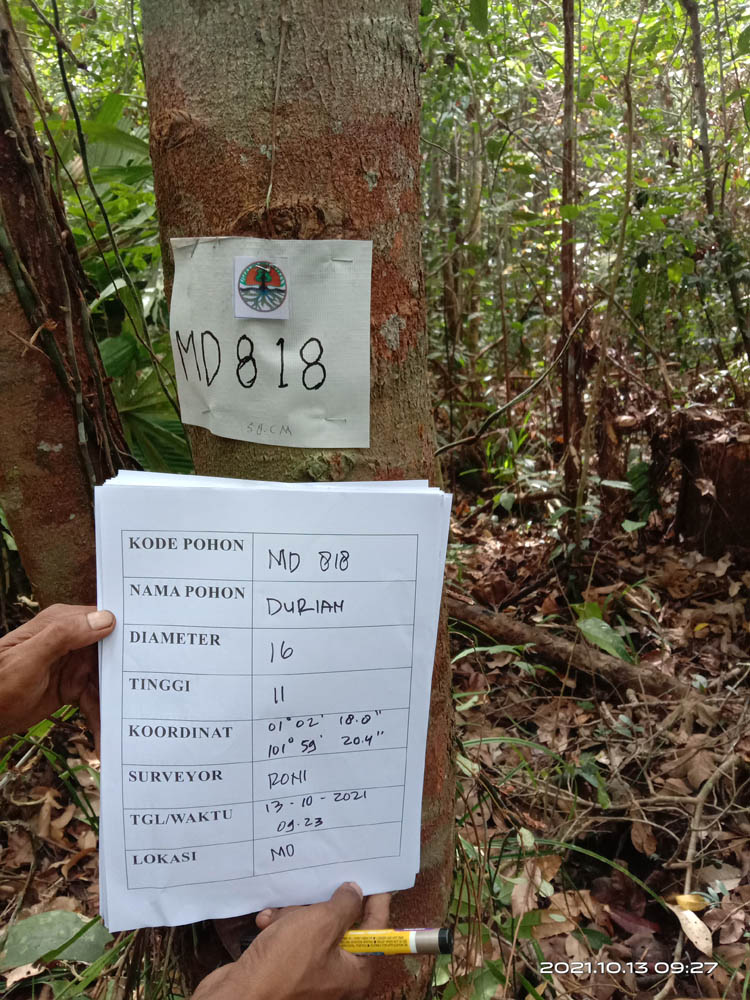 MD 818
KODE POHON MD 818
NAMA POHON DURIAN
DIAMETER 16
TINGGI 11
KOORDINAT 01° 02' 18.0"
101° 59' 20.4"
SURVEYOR RONI
TGL/WAKTU 13-10-2021
09.23
LOKASI MD
2021.10.13 09:27